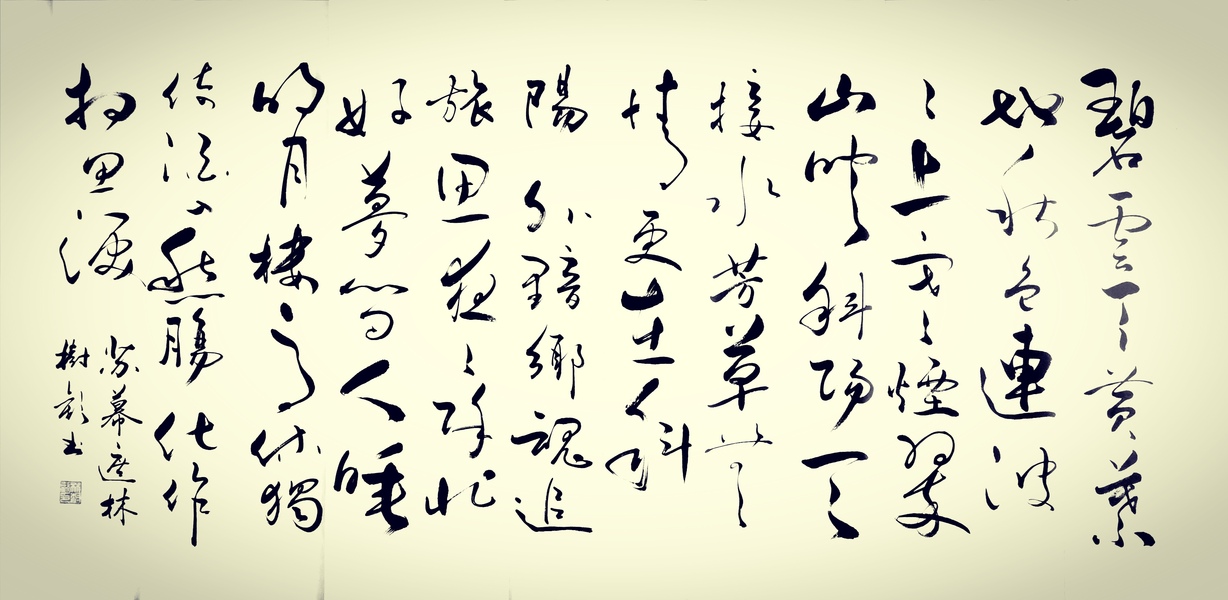 碧雲天黃葉
地秋色連波
〻上寒煙翠
山映斜陽天
接水芳草無
情更在斜
陽外黯鄉魂追
旅思夜〻除非
好夢留人睡
明月樓高休獨
倚酒入愁腸化作
相思淚
蘇幕遮林
樹書